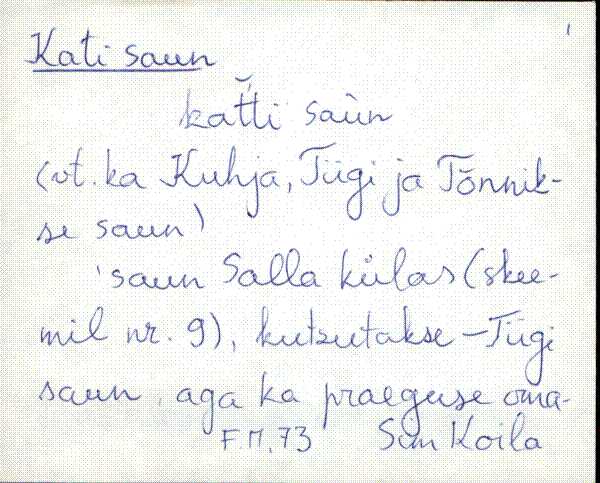 1
Kati saun
kat̆ti saùn
(vt. ka Kuhja, Tiigi ja Tõnnik-
se saun)
'saun Salla külas (skee-
mil nr. 9), kutsutakse - Tiigi
saun, aga ka praeguse oma-
F.M, 73 Sim Koila